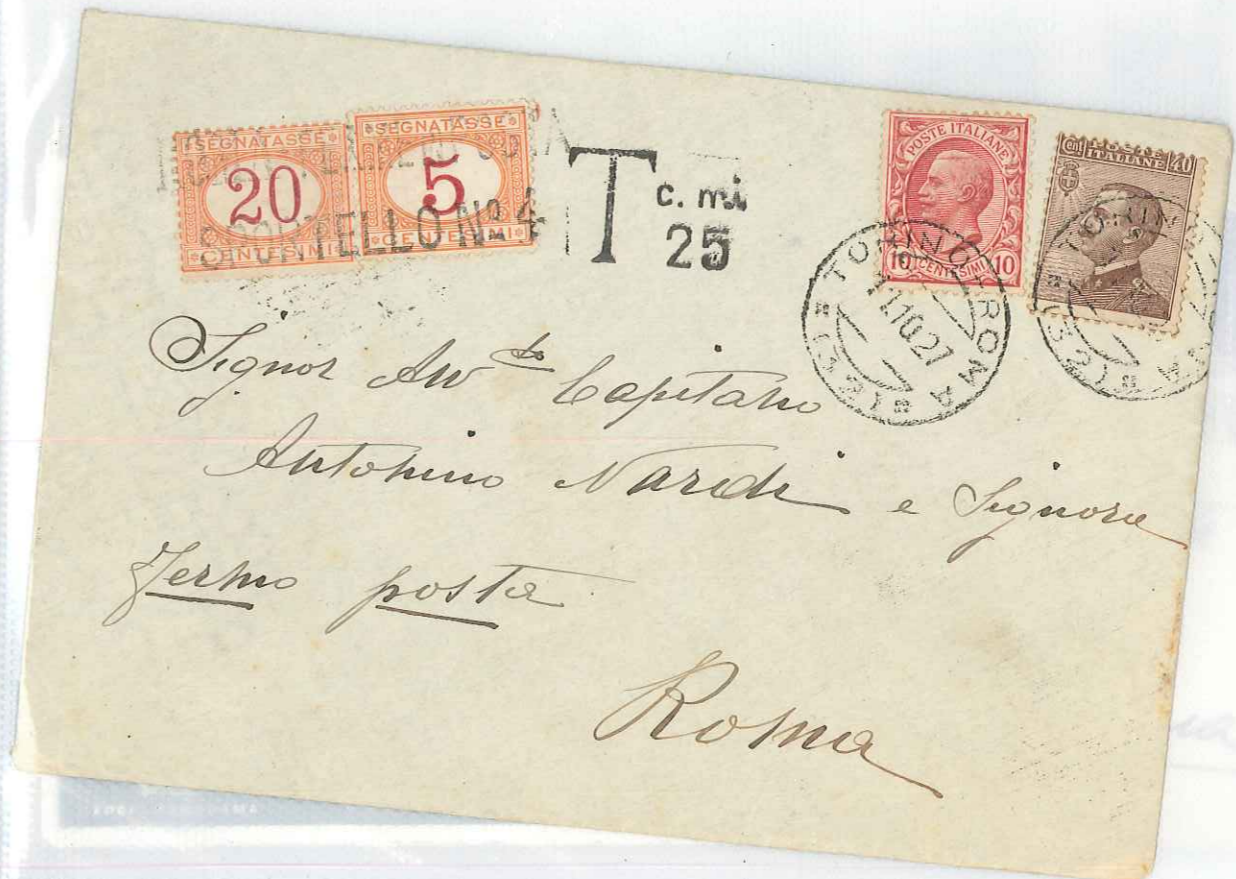 SEGNATASSE
20
CENTESIMI
SEGNATASSE
5
CENTESIMI
SPORTELLO Nº 4
T c. mi
25
POSTE ITALIANE
10 CENTESIMI 10
cent 40
ITALIANE
TORINO-ROMA
11.10.27
*(32)*
TORINO-ROMA
*(32)*
Signor Avv to Capitano
Antonino Nardi e Signora
Fermo posta
Roma